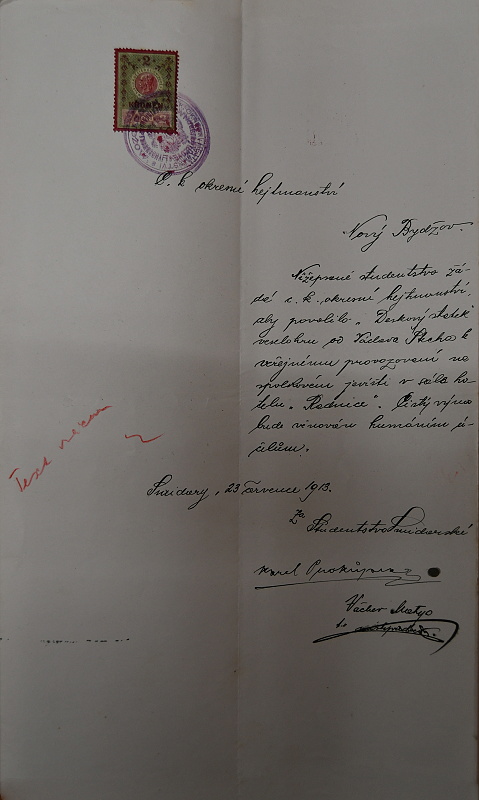 2
KRONEN
C. k. okresní hejtmanství
Nový Bydžov.
Nížepsané studentstvo žá-
dá c. k. okresní hejtmanství,
aby povolilo „Daskový statek"
veselohru od Václava Štecha k
veřejnému provozování na
spolkovém jevišti v sále ho-
telu „Radnice". Čistý výnos
bude věnován humáním ú-
čelům.
Smidary, 23 července 1913.
Za
Studentstvo Smidarské
Karel Prokůpek
Václav